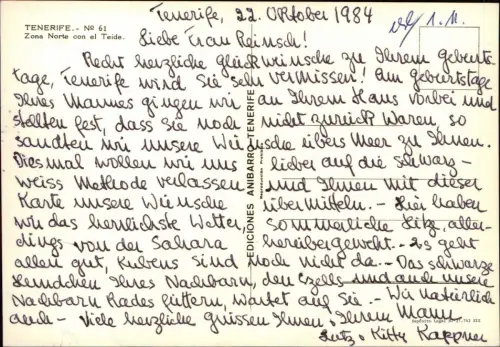 Tenerife, 22. Oktober 1984
TENERIFE.- Nº 61
Zona Norte con el Teide.
Liebe Frau Reinsch!
Recht herzliche Glückwünsche zu Ihrem Geburts-
tage, Tenerife wird Sie sehr vermissen! Am Geburtstage
Ihres Mannes gingen wir an Ihrem Haus vorbei und
stellten fest, dass Sie noch nicht zurück waren, so
sandten wir unsere Wünsche übers Meer zu Ihnen.
Diesmal wollen wir uns lieber auf die schwarz-
weiss Methode verlassen und Ihnen mit dieser
Karte unsere Wünsche übermitteln. - Hier haben
wir das herrlichste Wetter, sommerliche Hitze, aller-
dings von der Sahara herübergeweht. - Es geht
allen gut, Kubens sind noch nicht da. - Das schwarze
Hundchen Ihres Nachbarn, den Czells und auch unsere
Nachbarn Rades füttern, wartet auf Sie. - Wir natürlich
auch - Viele herzliche grüssen Ihnen, Ihrem Mann
Lutz + Kitty Kappner
EDICIONES ANIBARRO-TENERIFE
1. 11.